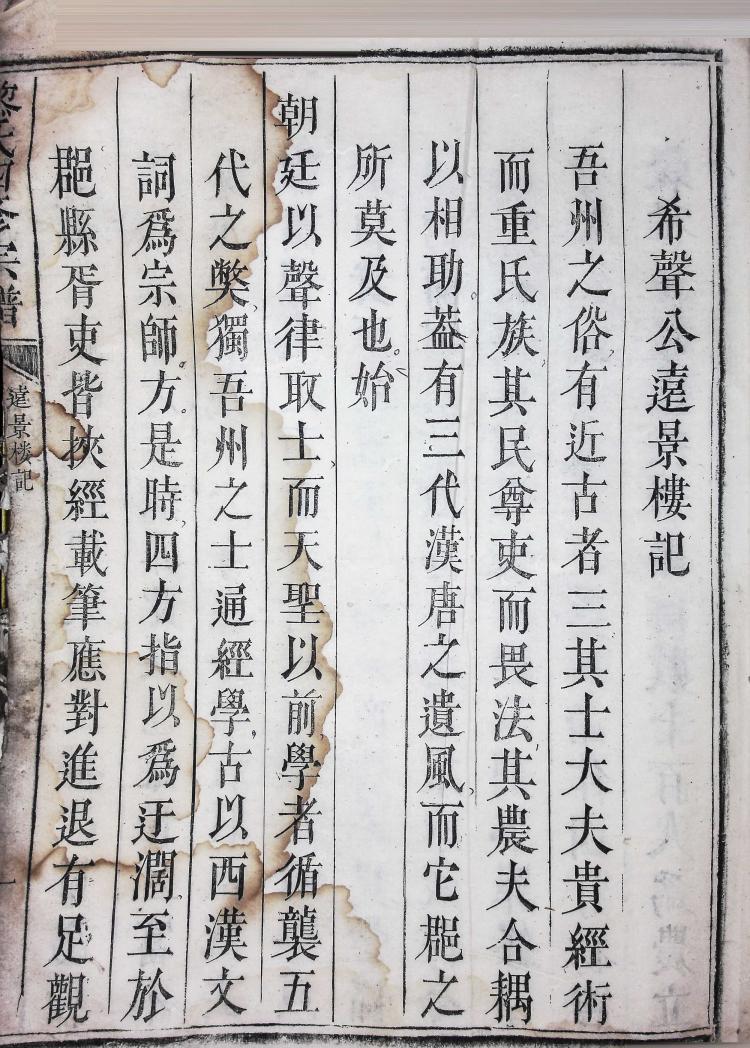 希聲公遠景樓記
吾州之俗有近古者三其士大夫貴經術
而重氏族其民尊吏而畏法其農夫合耦
以相助葢有三代漢唐之遺風而它郡之
所莫及也始
朝廷以聲律取士而天聖以前學者循襲五
代之獘獨吾州之士通經學古以西漢文
詞爲宗師方是時四方指以爲迂濶至於
郡縣胥吏皆挾經載筆應對進退有足觀
遠景樓記
一